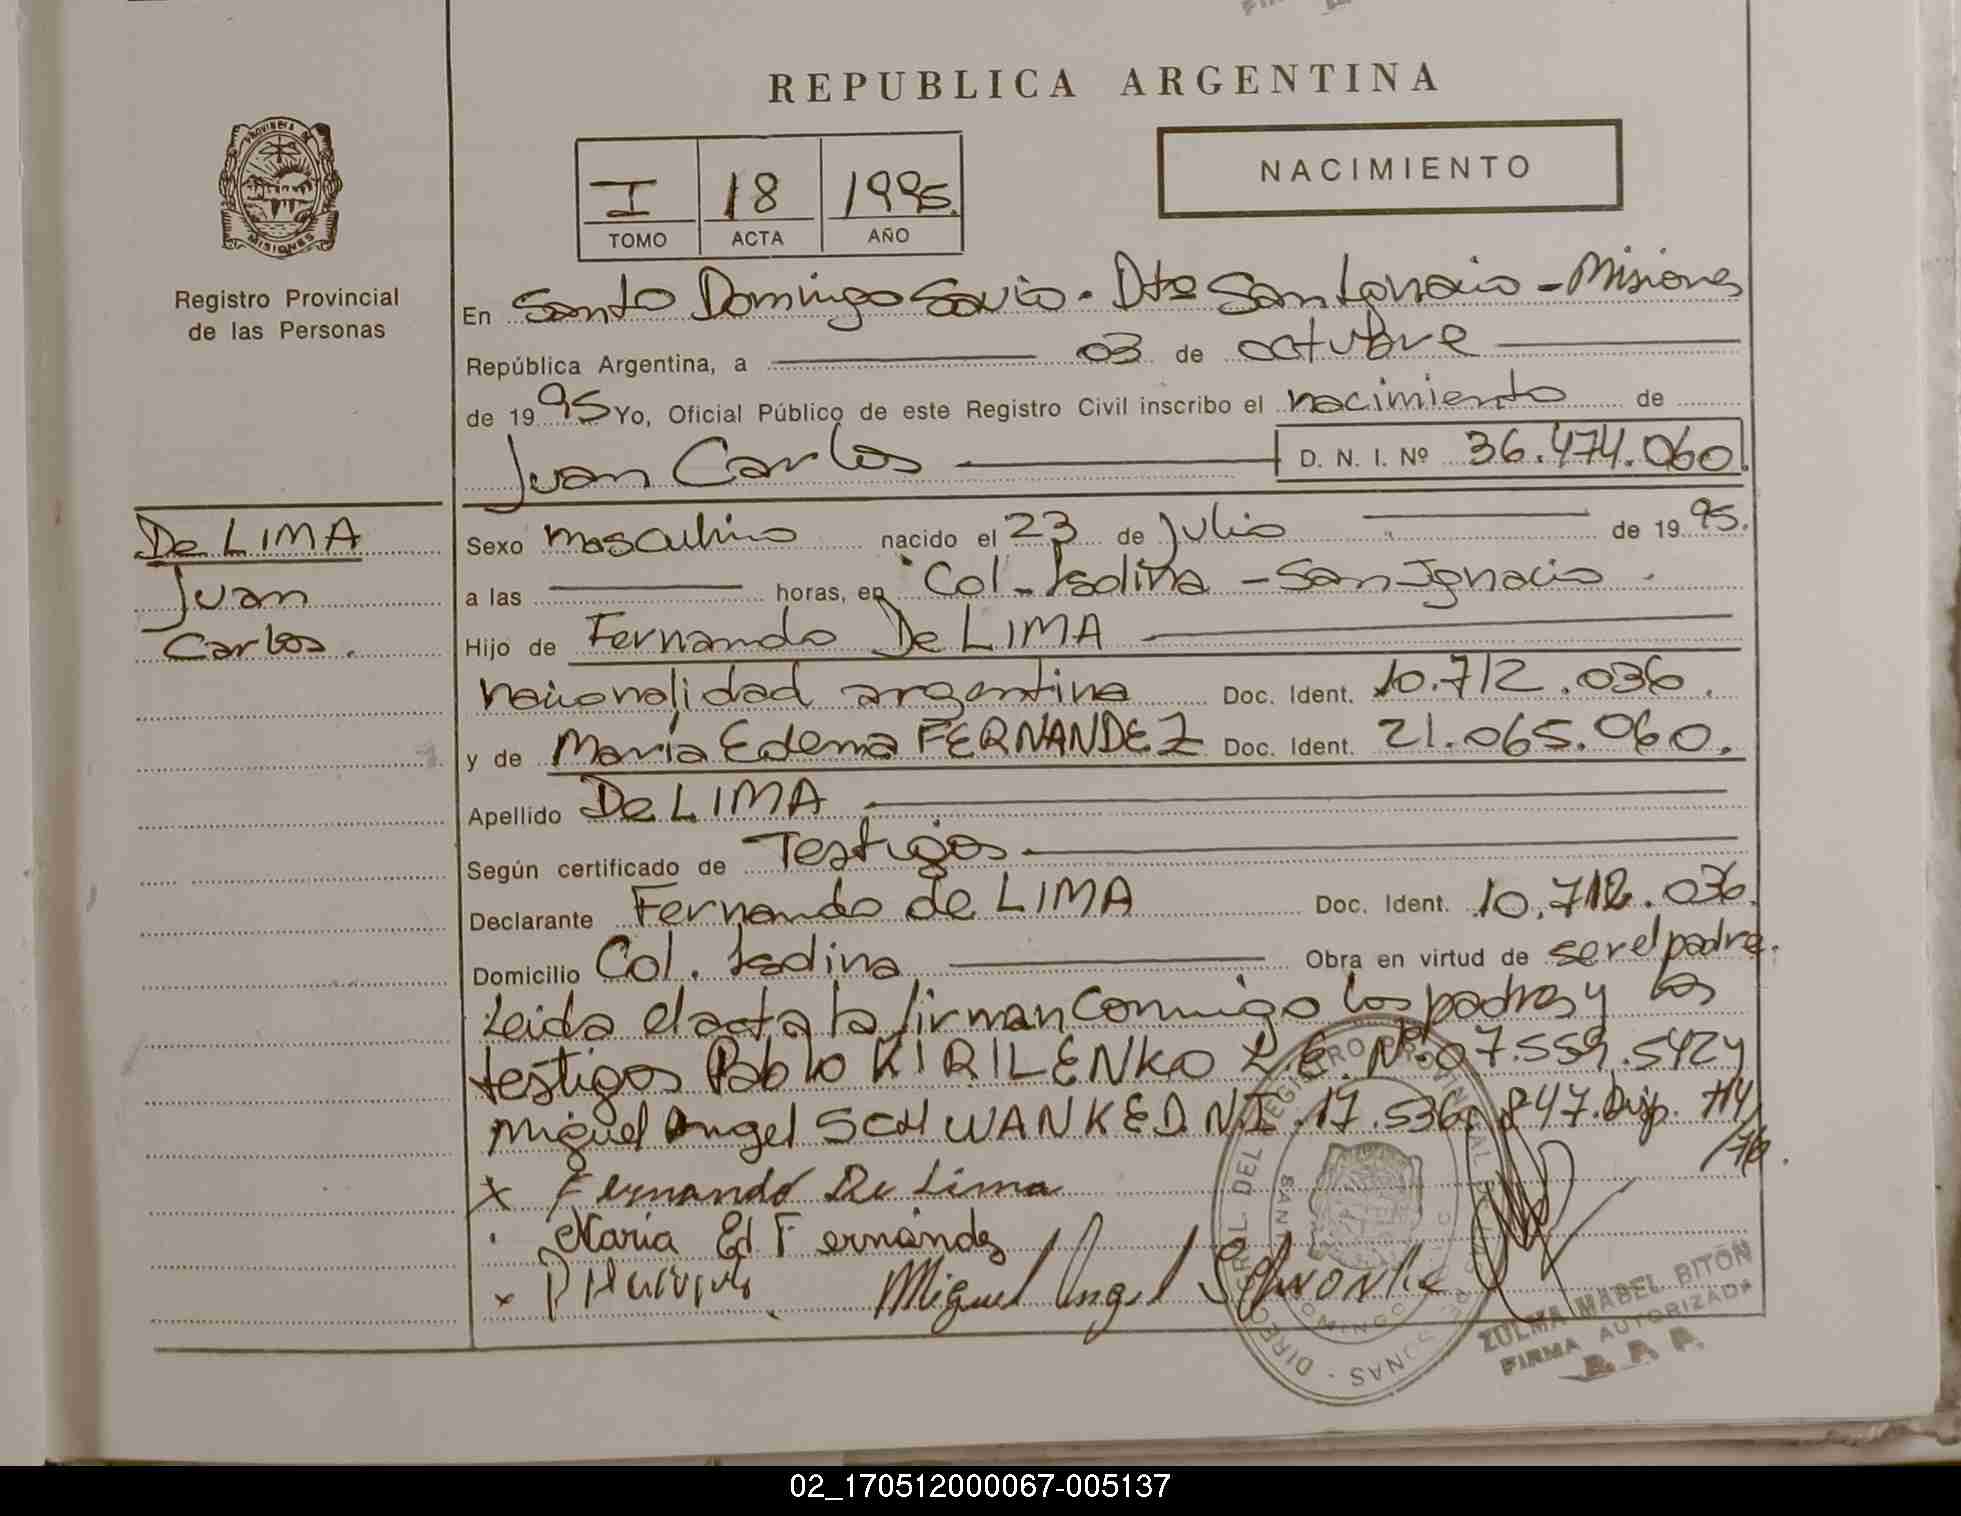 REPUBLICA ARGENTINA
PROVINCIA DE
MISIONES
Registro Provincial
de las Personas
I 18 1995.
TOMO ACTA AÑO
NACIMIENTO
En Santo Domingo Savio - Dto San Ignacio - Misiones
República Argentina, a 03 de octubre
de 1995 Yo, Oficial Público de este Registro Civil inscribo el nacimiento de
Juan Carlos D. N. I. Nº 36.474.060
De LIMA
Juan
Carlos.
Sexo masculino nacido el 23 de Julio de 1995.
a las horas, en Col. Isolina - San Ignacio
Hijo de Fernando De LIMA
nacionalidad argentina Doc. Ident. 10.712.036.
y de María Edema FERNANDEZ Doc. Ident. 21.065.060.
Apellido De LIMA
Según certificado de Testigos
Declarante Fernando de LIMA Doc. Ident. 10.712.036.
Domicilio Col. Isolina Obra en virtud de ser el padre.
Leida el acta la firman conmigo los padres y los
testigos Pablo KIRILENKO L.E. Nº 07.559.542 y
Miguel Angel SCHWANKE D.N.I. 17.536.847. Disp. 714
/76.
x Fernando De Lima
Maria Ed Fernández
Miguel Angel Schwanke
DIREC. GRAL. DEL REGISTRO PROVINCIAL DE LAS PERSONAS
ZULMA MABEL BITON
FIRMA AUTORIZADA
R. P. P.
02_170512000067-005137